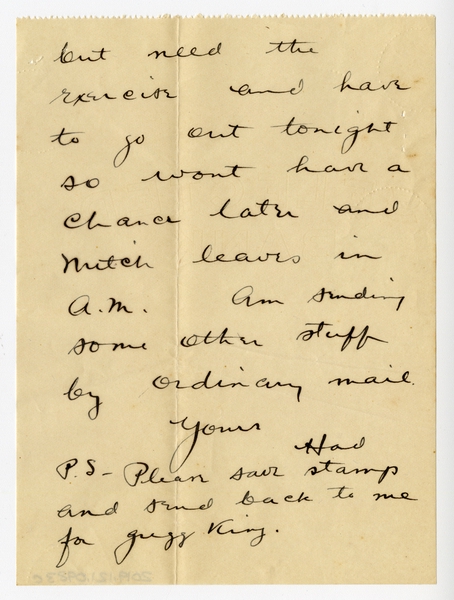 but need the
exercise and have
to go out tonight
so wont have a
chance later and
Mitch leaves in
A.M. Am sending
some other stuff
by ordinary mail.
Yours
Had
P.S- Please save stamp
and send back to me
for Gregg King.
2019.121.0983c